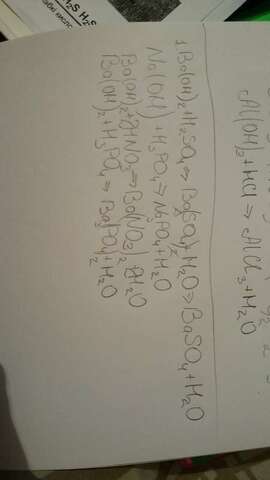 Al(OH)₃+HCl ⇒ AlCl₃+H₂O
1 Ba(OH)₂+H₂SO₄ ⇒ Ba(SO₄)₂+H₂O ⇒ BaSO₄+H₂O
Na(OH)+H₃PO₄ ⇒ Na₃PO₄+H₂O
Ba(OH)₂+2HNO₃ ⇒ Ba(NO₃)₂+2H₂O
Ba(OH)₂+H₃PO₄ ⇒ Ba₃(PO₄)₂+H₂O